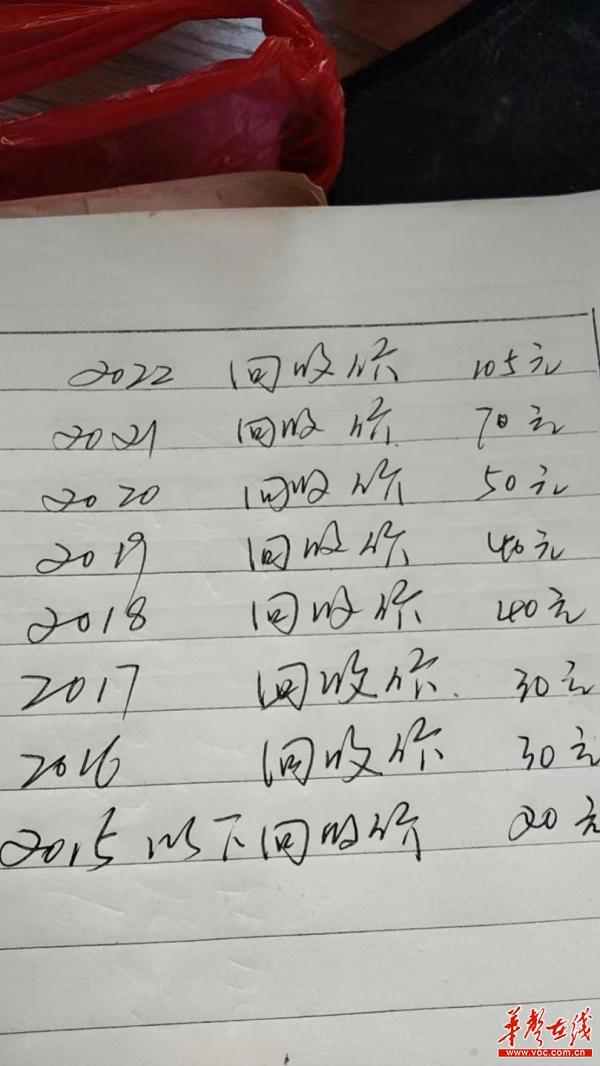 2022 回收价 105元
2021 回收价 70元
2020 回收价 50元
2019 回收价 40元
2018 回收价 40元
2017 回收价. 30元
2016 回收价 30元
2015以下回收价 20元
华声在线
www.voc.com.cn